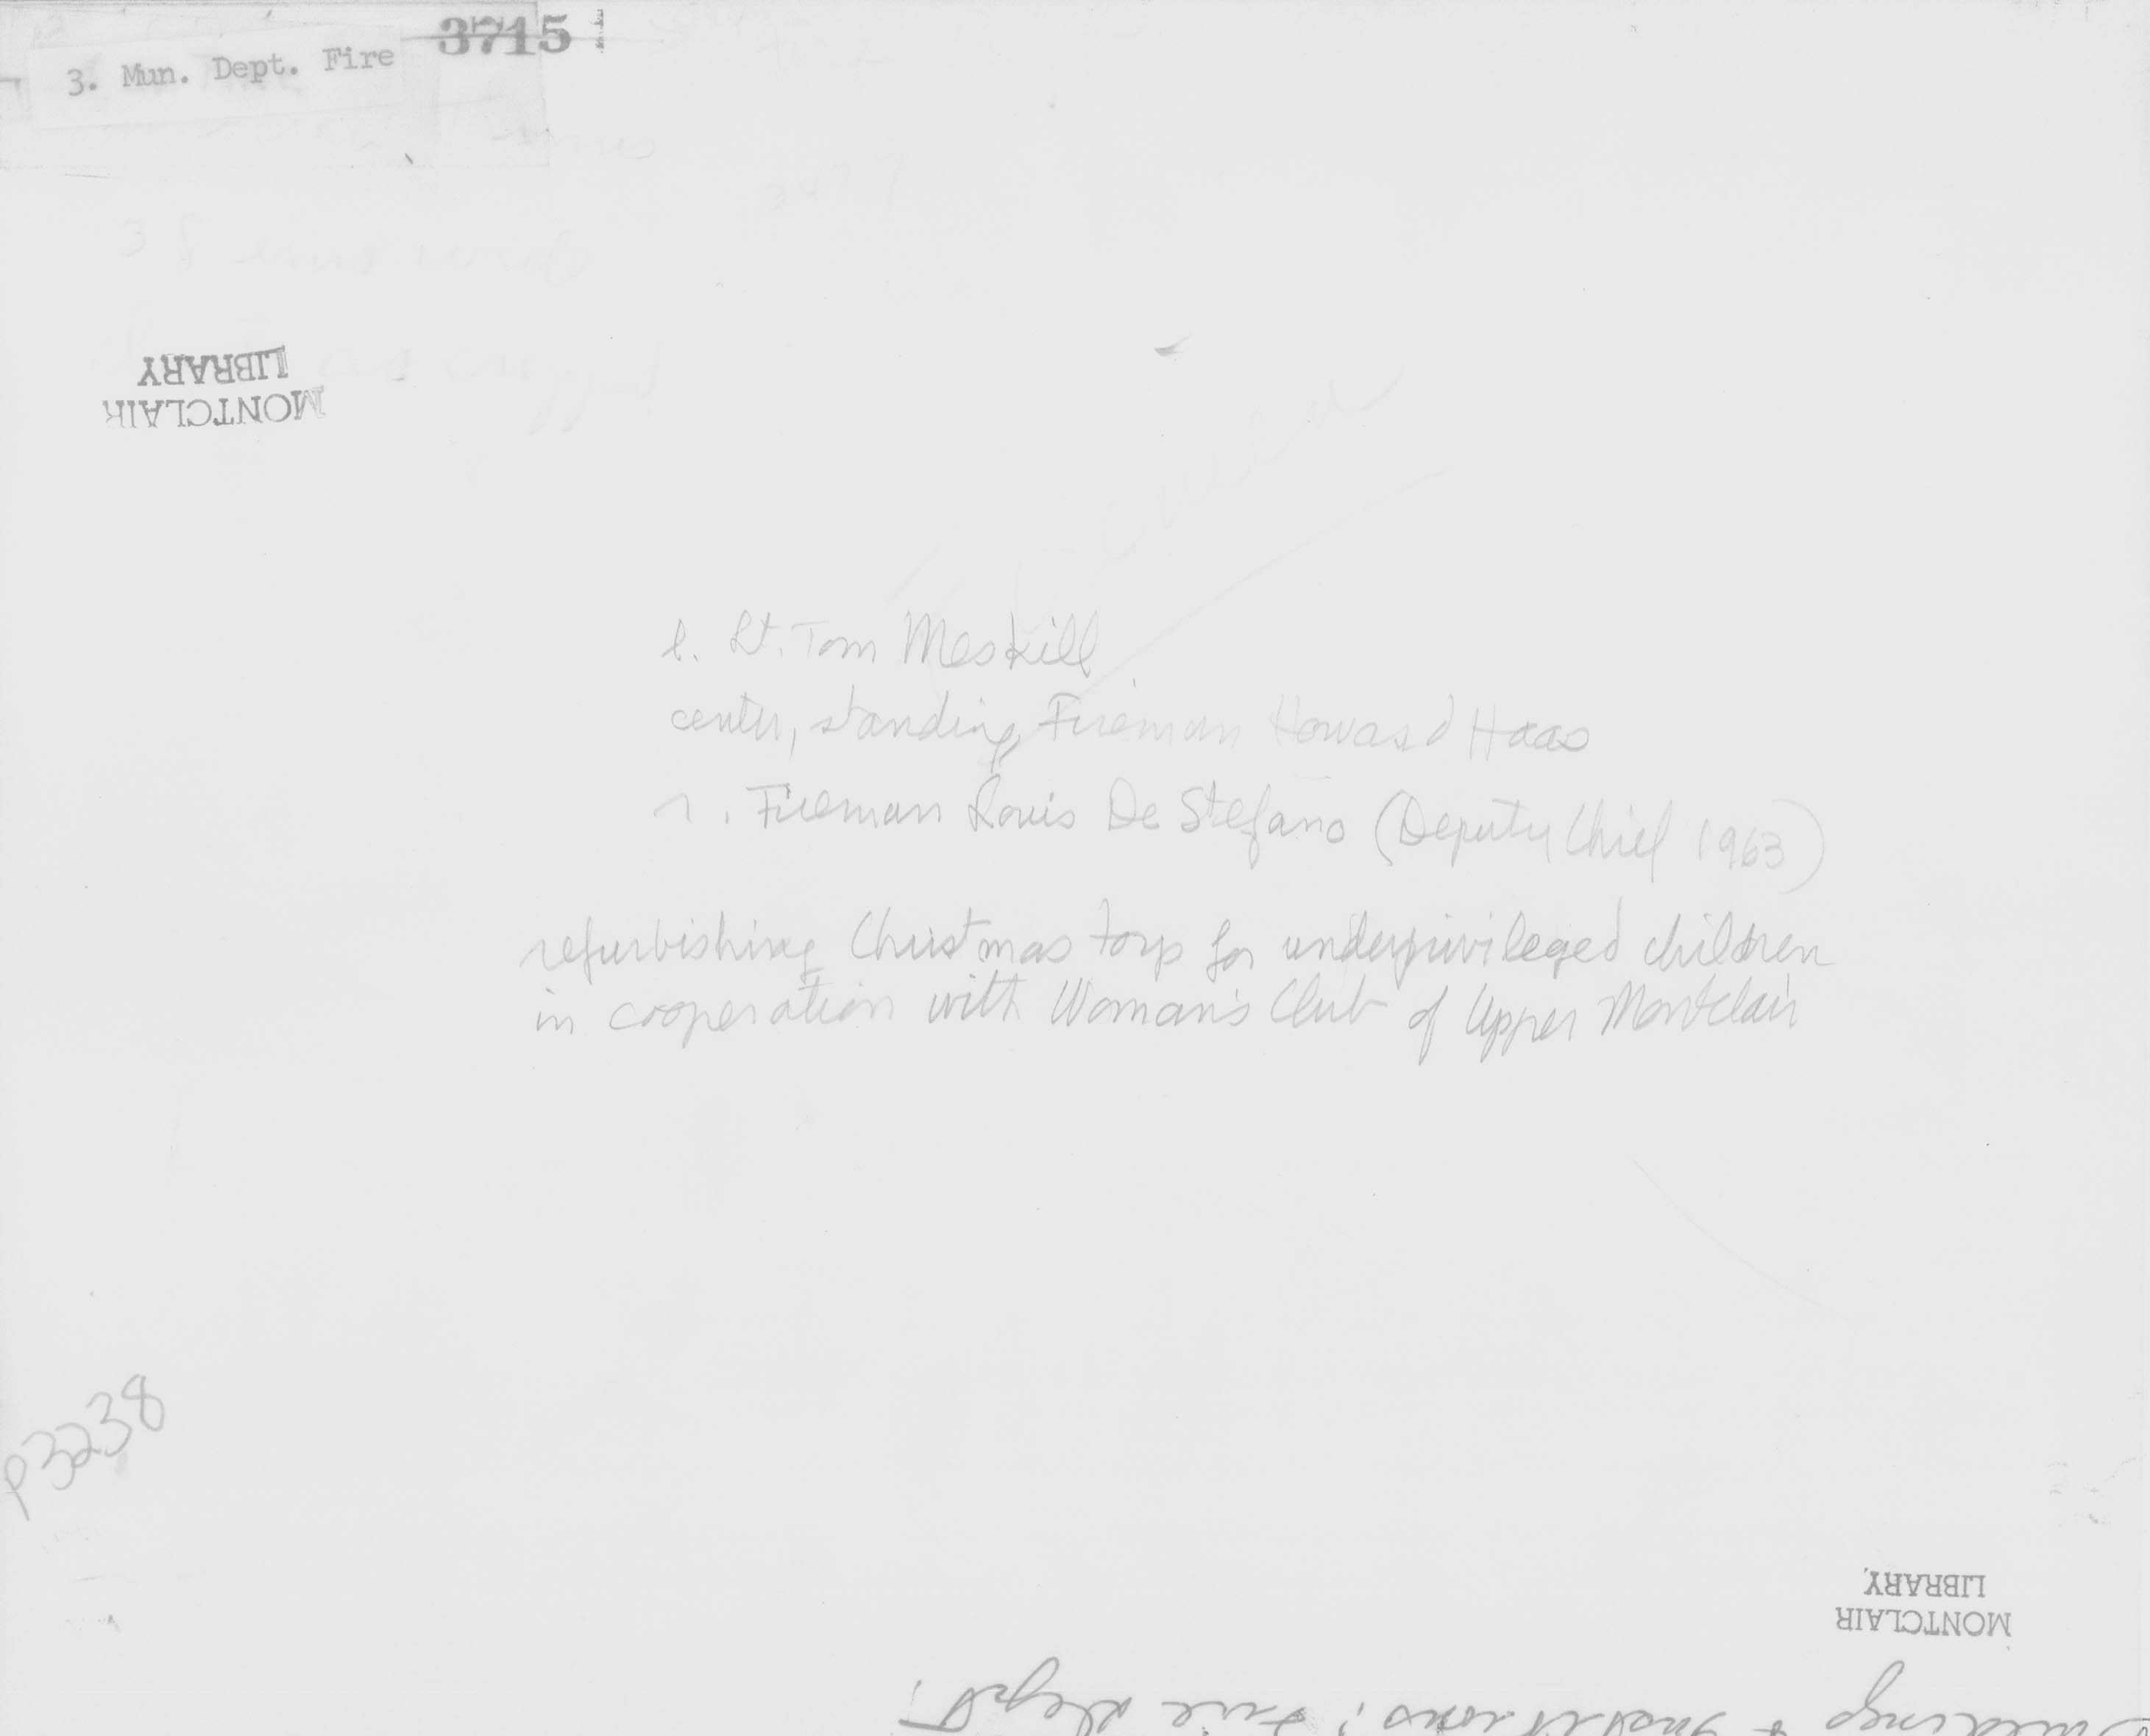 3715
3. Mun. Dept. Fire
MONTCLAIR
LIBRARY
l. Lt. Tom Meskill
center, standing Fireman Howard Haas
r. Fireman Louis De Stefano (Deputy Chief 1963)
refurbishing Christmas toys for underprivileged children
in cooperation with Woman's Club of Upper Montclair
P3238
MONTCLAIR
LIBRARY
Buildings & Institutions; Fire Dept.